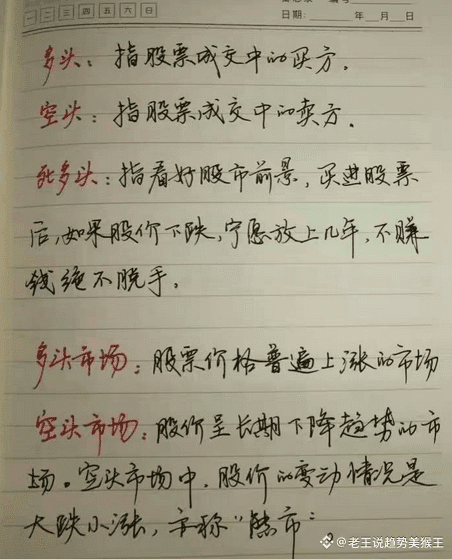 一 二 三 四 五 六 日
日期： 年 月 日
多头：指股票成交中的买方。
空头：指股票成交中的卖方.
死多头：指看好股市前景，买进股票
后，如果股价下跌，宁愿放上几年，不赚
钱绝不脱手。
多头市场：股票价格普遍上涨的市场
空头市场：股价呈长期下降趋势的市
场。空头市场中，股价的变动情况是
大跌小涨，亦称“熊市”。
@老王说趋势美猴王